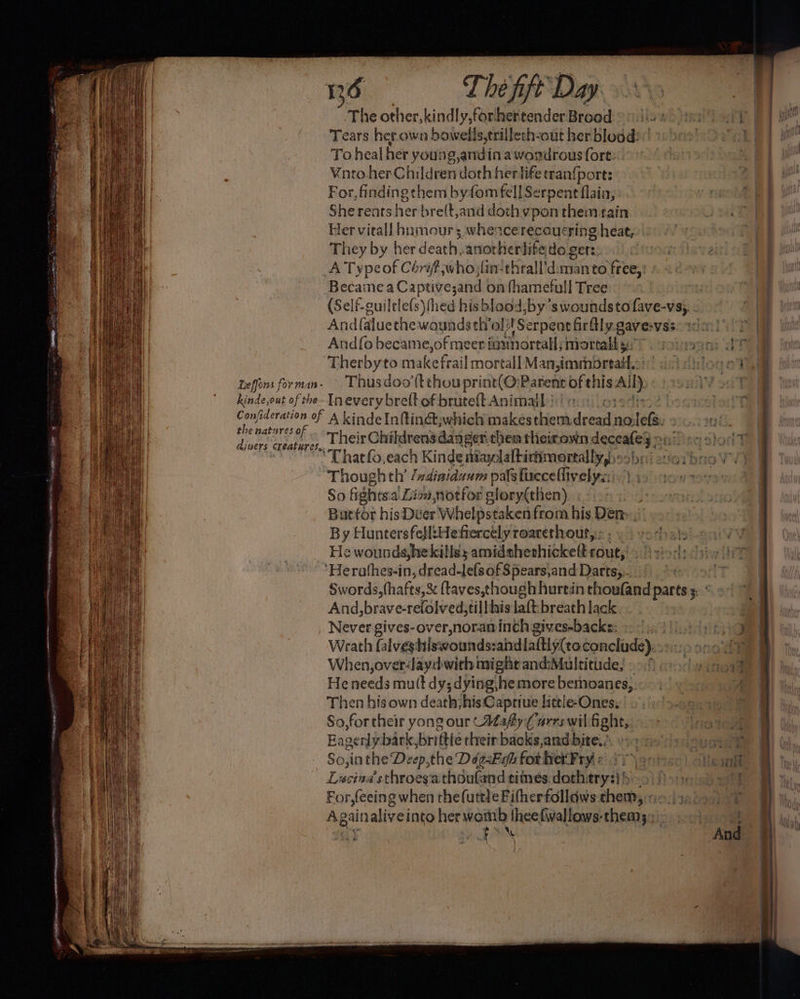 136 The fift Day.
The other, kindly, for her tender Brood
Tears her own bowells, trilleth-out her blood:
To heal her young, and in a wondrous sort
Vnto her Children doth her life transport:
For, finding them by som fell Serpent slain,
She rents her brest, and doth vpon them rain
Her vitall humour; whence recouering heat,
They by her death, another life do get:
A Type of Christ, who, sin-thrall'd man to free,
Became a Captiue; and on shamefull Tree
(Self-guiltless) shed his blood, by's wounds to saue-vs,
And salue the wounds th'old Serpent firstly gave-vs:
And so became, of meer immortall, mortall;
Therby to make frail mortall Man, immortall.
Lessons for man- kinde, out of the Consideration of the natures of diuers creatures.
Thus doo'st thou print (O Parent of this All)
In every brest of brutest Animall
A kinde Instinct, which makes them dread no less
Their Childrens danger then their own decease;
That so, each Kinde may last immortally,
Though th' Indiuiduum pass successively.
So fights a Lion, not for glory (then)
But for his Deer Whelps taken from his Den
By Hunters fell: He fiercely roareth out,
He wounds, he kills; amidst he thickest rout,
He rushes-in, dread-less of Spears, and Darts,
Swords, shafts, & staves, though hurt in thousand parts;
And, brave-resolved, till his last breath lack
Never gives-over, nor an inch gives-back:
Wrath salves his wounds: and lastly (to conclude)
When, over-layd with might and Multitude,
He needs must dy; dying, he more bemoanes,
Then his own death, his Captiue little-Ones.
So, for their yong our Masty Currs wil fight,
Eagerly bark, bristle their backs, and bite.
So, in the Deep, the Dog-Fish for her Fry
Lucina's throes a thousand times doth try:
For, seeing when the suttle Fisher follows them,
Again aliue into her womb shee swallows-them;
And